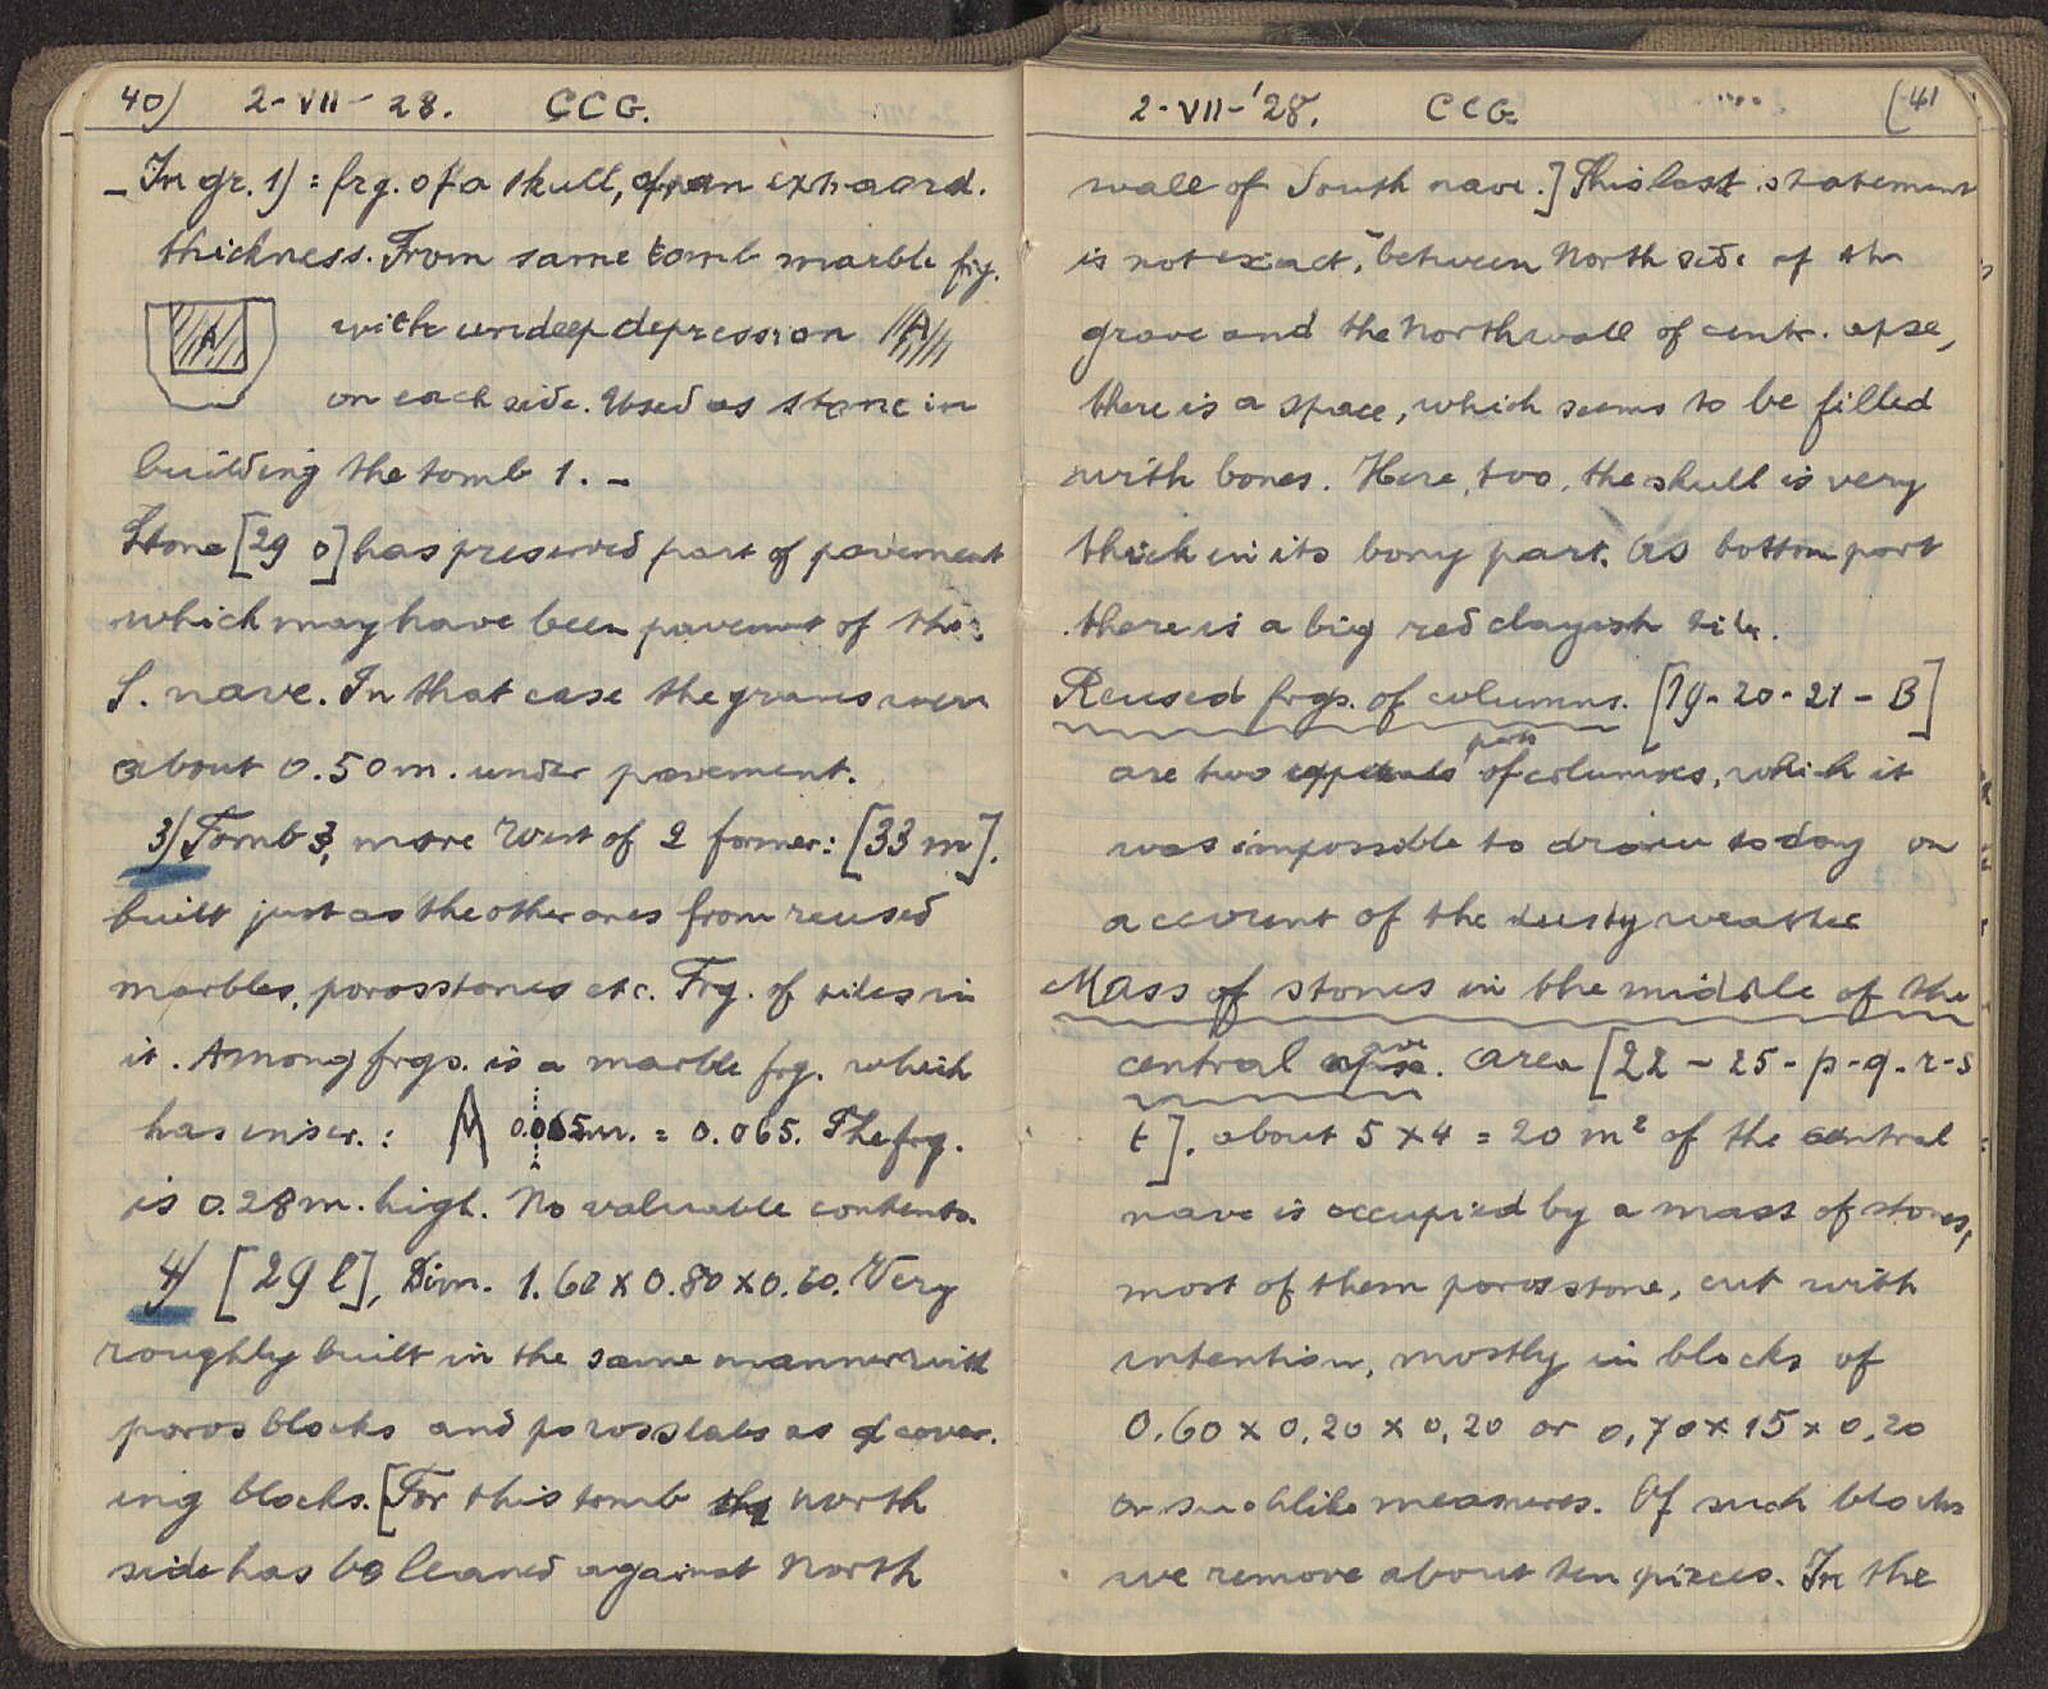 40) 2-VII-28. CCG.
- In gr. 1) = frg. of a skull, of an extraord.
thickness. From same tomb marble frg.
A with undeep depression A
on each side. Used as stone in
building the tomb 1. -
Stone [29 o] has preserved part of pavement
which may have been pavement of the
S. nave. In that case the graves were
about 0.50 m. under pavement.
3) Tomb 3, more West of 2 former: [33 m].
built just as the other ones from reused
marbles, porosstones etc. Frg. of tiles in
it. Among frgs. is a marble frg. which
has inscr.: 0.065 m. = 0.065. The frg.
is 0.28 m. high. No valuable contents.
4) [29 l], Dim. 1.60 x 0.80 x 0.60. Very
roughly built in the same manner with
poros blocks and poros slabs as cover-
ing blocks. [For this tomb the north
side has be leaned against North
2-VII-'28. CCG. (41
wall of South nave.] This last statement
is not exact, between North side of the
grave and the North wall of centr. apse,
there is a space, which seems to be filled
with bones. Here, too, the skull is very
thick in its bony part. As bottom part
there is a big red clayish tile.
Reused frgs. of columns. [19-20-21-B]
are two parts of columns, which it
was impossible to draw today on
account of the dusty weather
Mass of stones in the middle of the
central nave. area [22-25-p-q-r-s
t]. about 5 x 4 = 20 m² of the central
nave is occupied by a mass of stones,
most of them poros stone, cut with
intention, mostly in blocks of
0.60 x 0,20 x 0,20 or 0,70 x 15 x 0,20
or suchlike measures. Of such blocks
we remove about ten pieces. In the